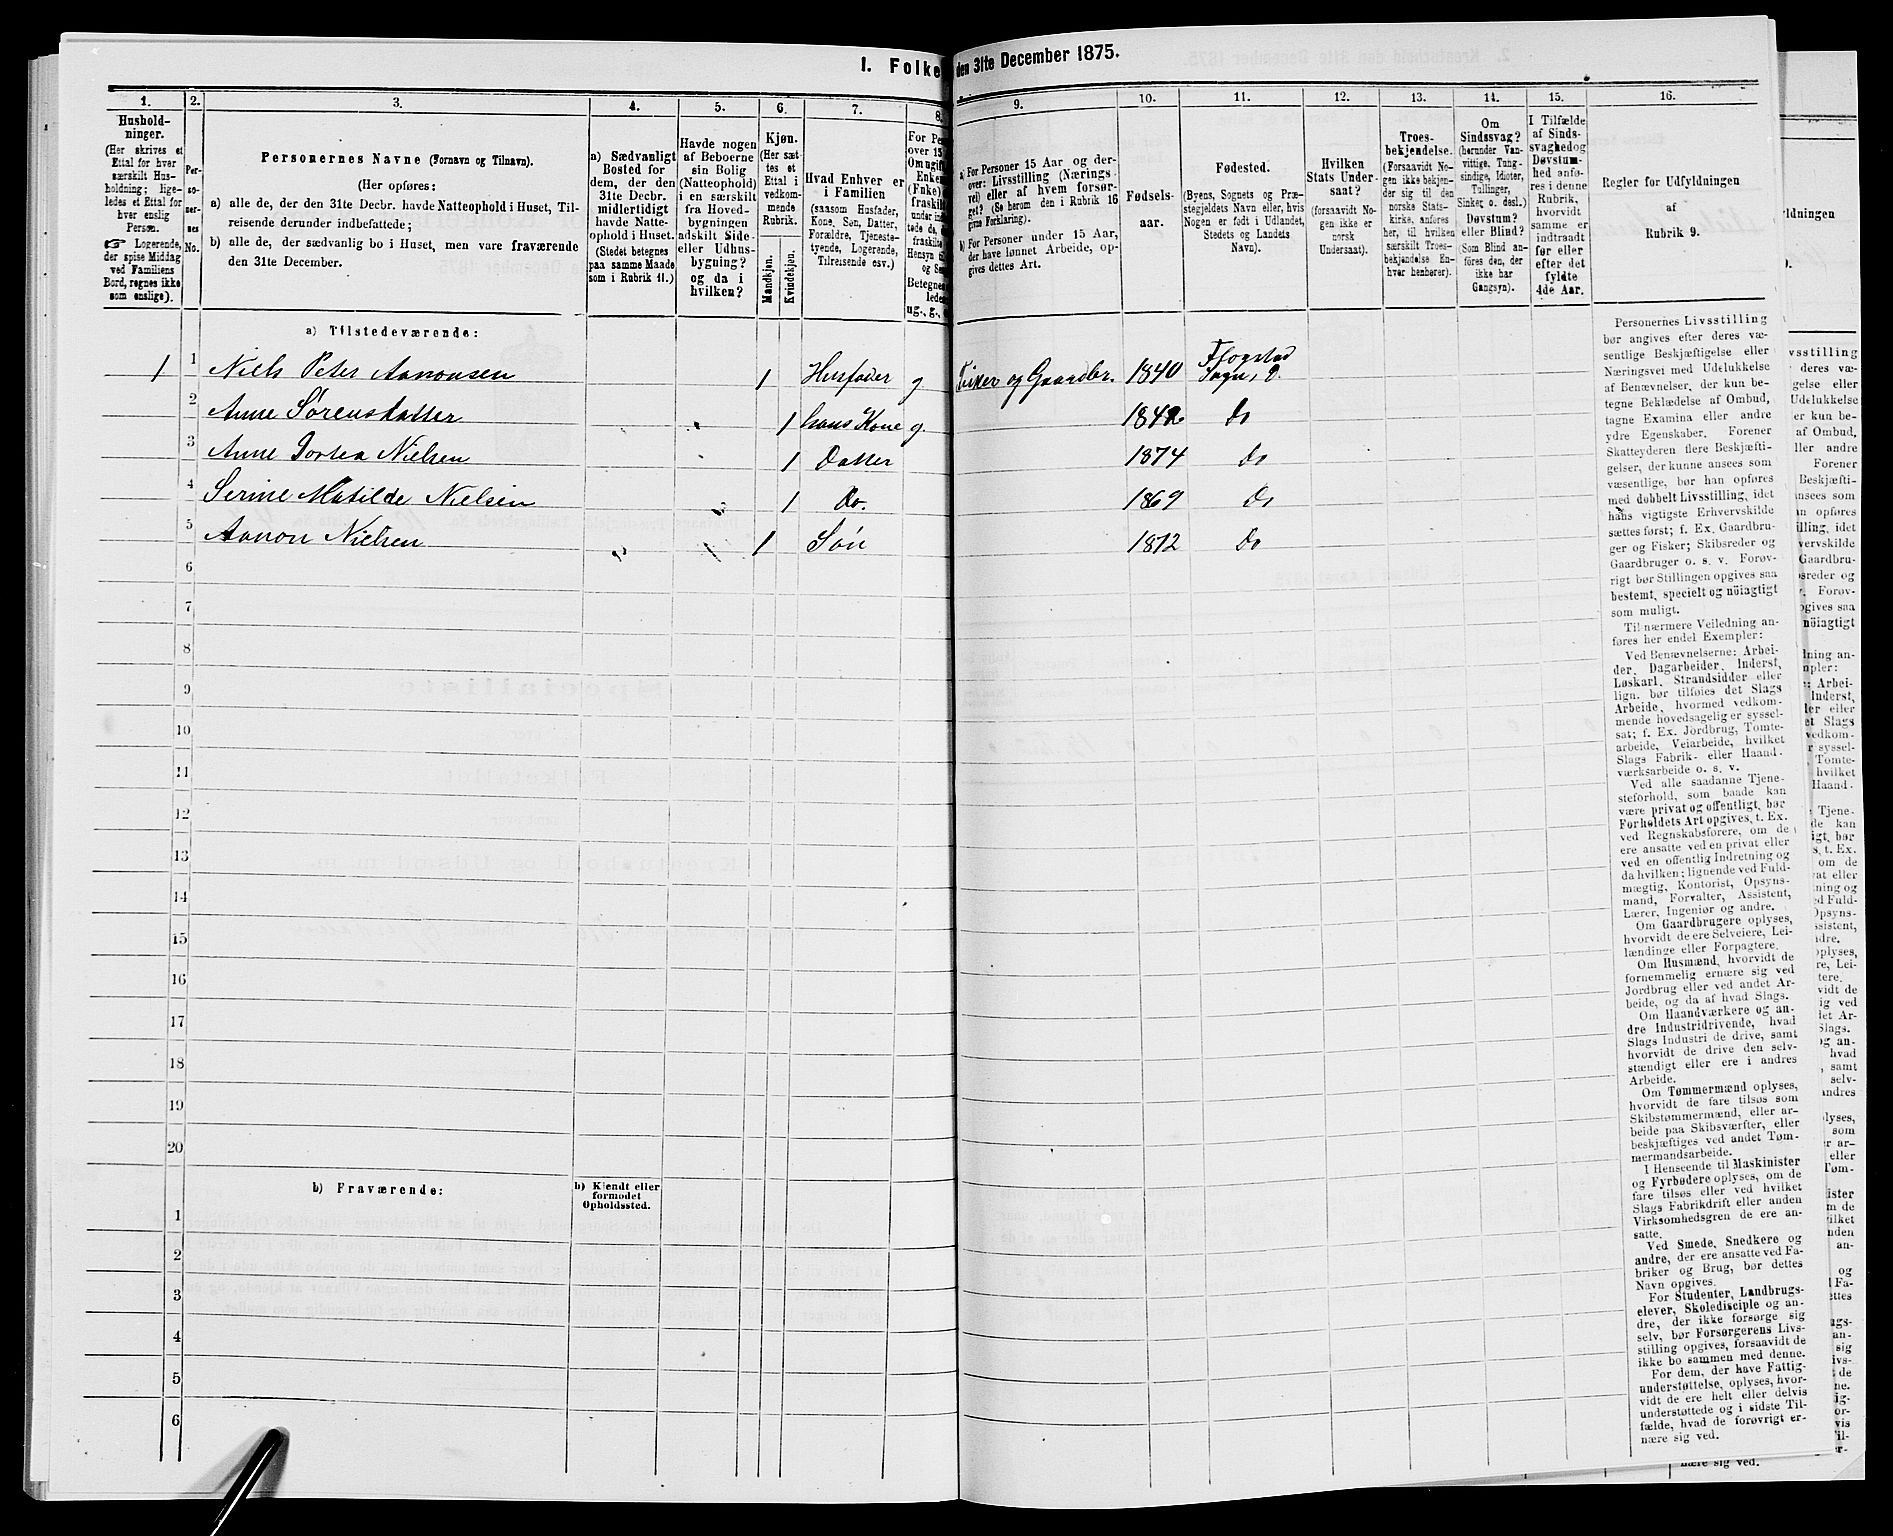 I. Folke
den 31te December 1875.
1.
2.
3.
4.
5.
6.
7.
8.
9.
10.
11.
12.
13.
14.
15.
16.
Hushold-
ninger.
(Her skrives et
Ettal for hver
særskilt Hus-
holdning; lige-
ledes et Ettal for
hver enslig
Person.
☞ Logerende,
der spise Middag
ved Familiens
Bord, regnes ikke
som enslige).
Per-
so-
ner-
nes
No.
Personernes Navne (Fornavn og Tilnavn).
(Her opføres:
a) alle de, der den 31te Decbr. havde Natteophold i Huset, Til-
reisende derunder indbefattede;
b) alle de, der sædvanlig bo i Huset, men vare fraværende
den 31te December.
a) Sædvanligt
Bosted for
dem, der den
31te Decbr.
midlertidigt
havde Natte-
ophold i Huset.
(Stedet betegnes
paa samme Maade
som i Rubrik 11.)
Havde nogen
af Beboerne
sin Bolig
(Natteophold)
i en særskilt
fra Hoved-
bygningen
adskilt Side-
eller Udhus-
bygning?
og da i
hvilken?
Kjøn.
(Her sæt-
tes et
Ettal i
vedkom-
mende
Rubrik.
Mandkjøn.
Kvindekjøn.
Hvad Enhver er
i Familien
(saasom Husfader,
Kone, Søn, Datter,
Forældre, Tjeneste-
tyende, Logerende,
Tilreisende osv.)
For Pe
over 15
Om ugift
Enken
(Fnke)
fraskilt
under ind
Hensyn ti
og Se
Betegnes
ledes
ug., g.,
a) For Personer 15 Aar og der-
over: Livsstilling (Nærings-
vei) eller af hvem forsør-
get? (Se herom den i Rubrik 16
givne Forklaring).
b) For Personer under 15 Aar,
der have lønnet Arbeide, op-
gives dettes Art.
Fødsels-
aar.
Fødested.
(Byens, Sognets og Præ-
stegjeldets Navn eller, hvis
Nogen er født i Udlandet,
Stedets og Landets
Navn).
Hvilken
Stats Under-
saat?
(forsaavidt No-
gen ikke er
norsk
Undersaat).
Troes-
bekjendelse.
(Forsaavidt No-
gen ikke bekjen-
der sig til den
norske Stats-
kirke, anføres
her, til hvilken
særskilt Troes-
bekjendelse En-
hver henhører).
Om
Sindssvag?
(herunder Van-
vittige, Tung-
sindige, Idioter,
Tullinger,
Sinker o. desl.)
Døvstum?
eller Blind?
(Som Blind an-
føres den, der
ikke har
Gangsyn).
I Tilfælde
af Sinds-
svaghed og
Døvstum-
hed anfø-
res i denne
Rubrik,
hvorvidt
samme er
indtraadt
før eller
efter det
fyldte
4de Aar.
Regler før Udfyldningen
af
Rubrik 9.
a) Tilstedeværende:
1 1 Niels Peter Aanonsen 1 Husfader g Fisker og Gaardbr. 1840 Flogstad
Sogn, &.
2 Anne Sørensdatter 1 hans Kone g. 1842 Do
3 Anne Dortea Nielsen 1 Datter 1874 Do
4 Serine Matilde Nielsen 1 Do. 1869 Do
5 Aanon Nielsen 1 Søn 1872 Do
6
7
8
9
10
11
12
13
14
15
16
17
18
19
20
b) Fraværende:
b) Kjendt eller
formodet
Opholdssted.
1
2
3
4
5
6
Personernes Livsstilling
bør angives efter deres væ-
sentlige Beskjæftigelse eller
Næringsvei med Udelukkelse
af Benævnelser, der kun be-
tegne Beklædelse af Ombud,
tagne Examina eller andre
ydre Egenskaber. Forener
Skatteyderen flere Beskjæfti-
gelser, der kunne ansees som
væsentlige, bør han opføres
med dobbelt Livsstilling, idet
hans vigtigste Erhvervskilde
sættes først; f. Ex. Gaardbru-
ger og Fisker; Skibsreder og
Gaardbruger o. s. v. Forøv-
rigt bør Stillingen opgives saa
bestemt, specielt og nöiagtigt
som muligt.
Til nærmere Veiledning an-
føres her endel Exempler:
Ved Benævnelserne: Arbei-
der, Dagarbeider, Inderst,
Løskarl, Strandsidder eller
lign. bør tilføies det Slags
Arbeide, hvormed vedkom-
mende hovedsagelig er syssel-
sat; f. Ex. Jordbrug, Tomte-
arbeide, Veiarbeide, hvilket
Slags Fabrik- eller Haand-
værksarbeide o. s. v.
Ved alle saadanne Tjene-
steforhold, som baade kan
være privat og offentligt, bør
Forholdets Art opgives, t. Ex.
ved Regnskabsførere, om de
ere ansatte ved en privat eller
ved en offentlig Indretning og
da hvilken; lignende ved Fuld-
mægtig, Kontorist, Opsyns-
mand, Forvalter, Assistent,
Lærer, Ingeniør og andre.
Om Gaardbrugere oplyses,
hvorvidt de ere Selveiere, Lei-
lændinge eller Forpagtere.
Om Husmænd, hvorvidt de
fornemmelig ernære sig ved
Jordbrug eller ved andet Ar-
beide, og da af hvad Slags.
Om Haandværkere og an-
dre Industridrivende, hvad
Slags Industri de drive, samt
hvorvidt de drive den selv-
stændigt eller ere i andres
Arbeide.
Om Tømmermænd oplyses,
hvorvidt de fare tilsøs som
Skibstømmermænd, eller ar-
beide paa Skibsværfter, eller
beskjæftiges ved andet Tøm-
mermandsarbeide.
I Henseende til Maskinister
og Fyrbødere oplyses, om de
fare tilsøs eller ved hvilket
Slags Fabrikdrift eller anden
Virksomhedsgren de ere an-
satte.
Ved Smede, Snedkere og
andre, der ere ansatte ved Fa-
briker og Brug, bør dettes
Navn opgives.
For Studenter, Landbrugs-
elever, Skoledisciple og an-
dre, der ikke forsørge sig
selv, bør Forsørgerens Livs-
stilling opgives, forsaavidt de
ikke bo sammen med denne.
For dem, der have Fattig-
understøttelse, oplyses, hvor-
vidt de ere helt eller delvis
understøttede og i sidste Til-
fælde, hvad de forøvrigt er-
nære sig ved.